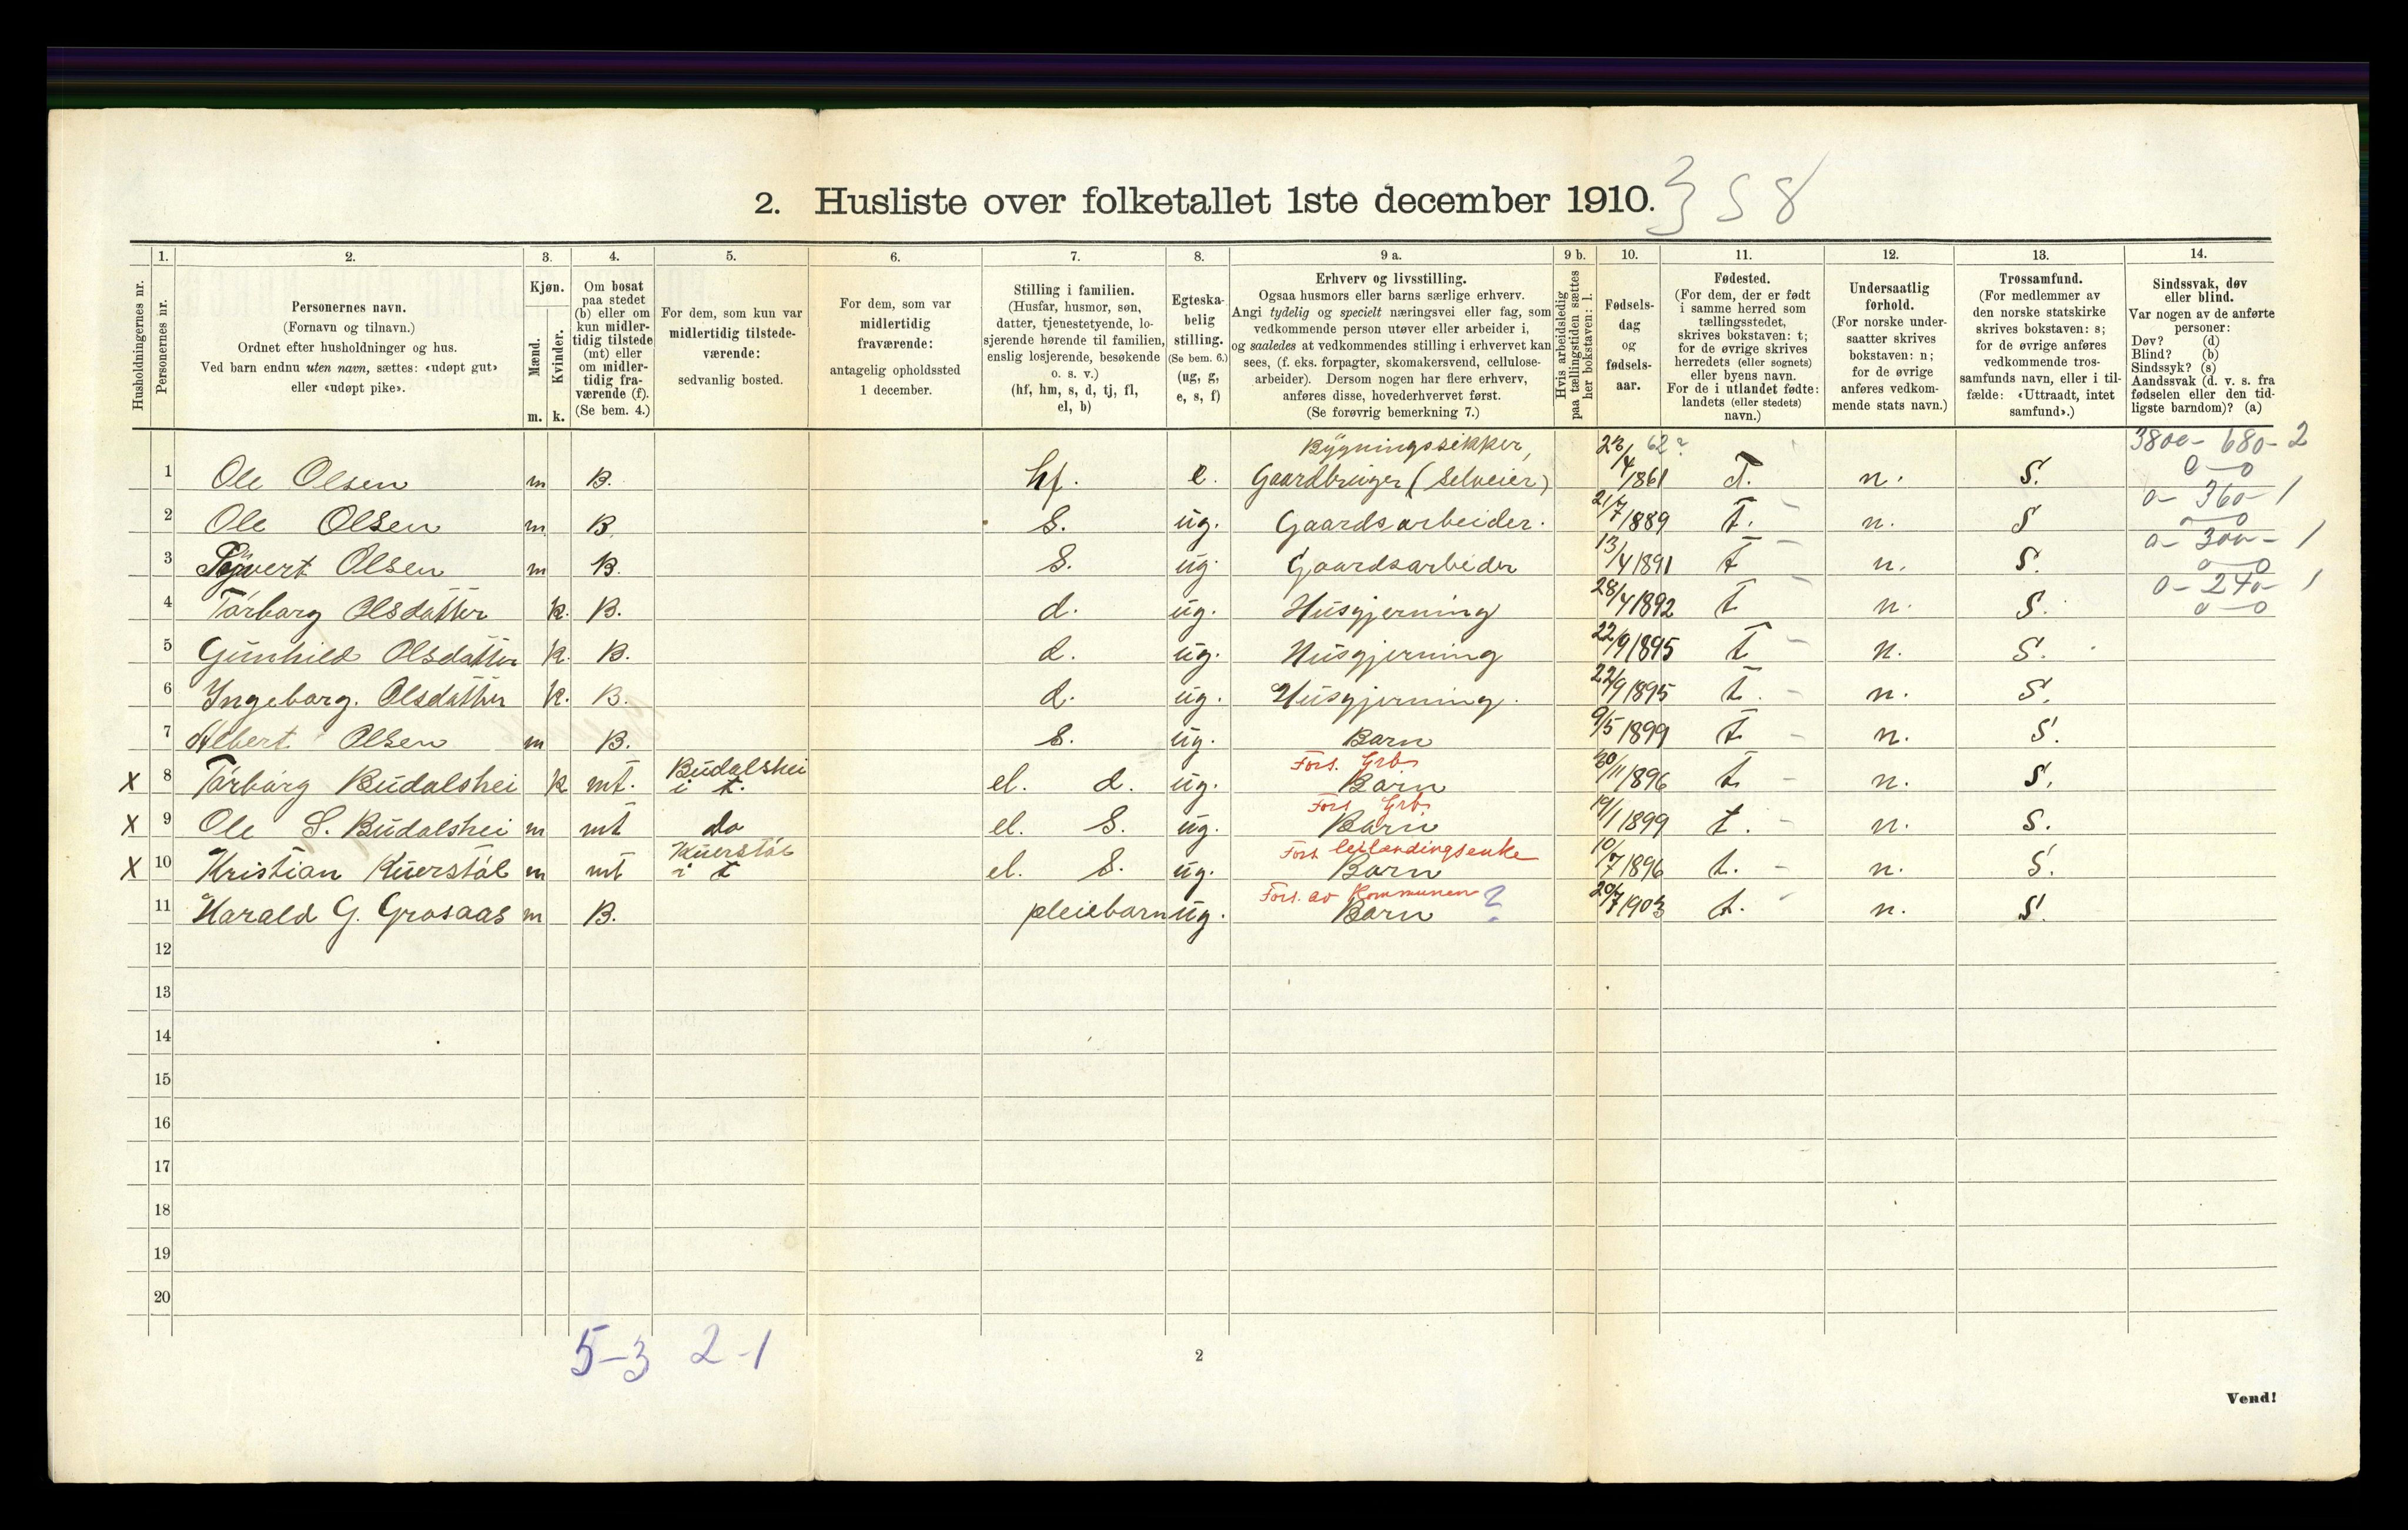 2. Husliste over folketallet 1ste december 1910. 358
Husholdningernes nr.
1. Personernes nr.
2. Personernes navn.
(Fornavn og tilnavn.)
Ordnet efter husholdninger og hus.
Ved barn endnu uten navn, sættes: «udøpt gut»
eller «udøpt pike».
3. Kjøn.
Mænd. m.
Kvinder. k.
4. Om bosat
paa stedet
(b) eller om
kun midler-
tidig tilstede
(mt) eller
om midler-
tidig fra-
værende (f).
(Se bem. 4.)
5. For dem, som kun var
midlertidig tilstede-
værende:
sedvanlig bosted.
6. For dem, som var
midlertidig
fraværende:
antagelig opholdssted
1 december.
7. Stilling i familien.
(Husfar, husmor, søn,
datter, tjenestetyende, lo-
sjerende hørende til familien,
enslig losjerende, besøkende
o. s. v.)
(hf, hm, s, d, tj, fl,
el, b)
8. Egteska-
belig
stilling.
(Se bem. 6.)
(ug, g,
e, s, f)
9 a. Erhverv og livsstilling.
Ogsaa husmors eller barns særlige erhverv.
Angi tydelig og specielt næringsvei eller fag, som
vedkommende person utøver eller arbeider i,
og saaledes at vedkommendes stilling i erhvervet kan
sees, (f. eks. forpagter, skomakersvend, cellulose-
arbeider). Dersom nogen har flere erhverv,
anføres disse, hovederhvervet først.
(Se forøvrig bemerkning 7.)
9 b. Hvis arbeidsledig
paa tællingstiden sættes
her bokstaven: l.
10. Fødsels-
dag
og
fødsels-
aar.
11. Fødested.
(For dem, der er født
i samme herred som
tællingsstedet,
skrives bokstaven: t;
for de øvrige skrives
herredets (eller sognets)
eller byens navn.
For de i utlandet fødte:
landets (eller stedets)
navn.)
12. Undersaatlig
forhold.
(For norske under-
saatter skrives
bokstaven: n;
for de øvrige
anføres vedkom-
mende stats navn.)
13. Trossamfund.
(For medlemmer av
den norske statskirke
skrives bokstaven: s;
for de øvrige anføres
vedkommende tros-
samfunds navn, eller i til-
fælde: «Uttraadt, intet
samfund».)
14. Sindssvak, døv
eller blind.
Var nogen av de anførte
personer:
Døv? (d)
Blind? (b)
Sindssyk? (s)
Aandssvak (d. v. s. fra
fødselen eller den tid-
ligste barndom)? (a)
Bygningssikker, 62? 3800- 680- 2
1 Ole Olsen m B. hf. e. Gaardbruger (Selveier) 23/4 1861 T. n. S. 0-0
0- 360- 1
2 Ole Olsen m B. S. ug. Gaardsarbeider. 21/7 1889 t. n. S 0-0
0- 300- 1
3 Syvert Olsen m B. S. ug. Gaardsarbeider 13/4 1891 t n. S. 0-0
0- 240- 1
4 Tårbarg Olsdatter k. B. d. ug. Husgjerning 28/4 1892 t n. S. 0-0
5 Gunhild Olsdatter k. B. d. ug. Husgjerning 22/9 1895 t n. S.
6 Ingebarg. Olsdatter k. B. d. ug. Husgjerning. 22/9 1895 t. n. S.
7 Albert Olsen m B. S. ug. Barn 9/5 1899 t n. S.
Budalshei Fors. Grb.
X 8 Tårbårg Budalshei k mt. i t. el. d. ug. Barn 30/11 1896 t n. S.
Fors Grb.
X 9 Ole S. Budalshei m mt do el. S. ug. Barn 19/1 1899 t. n. S.
Kuerstøl Fors leilændingsenke
X 10 Kristian Kuerstøl m mt i t el. S. ug. Barn 10/7 1896 t. n. S.
Fors. av Kommunen ?
11 Harald G. Grosaas m B. pleiebarn ug. Barn 20/7 1903 t. n. S.
12
13
14
15
16
17
18
19
20
5-3 2-1
2
Vend!